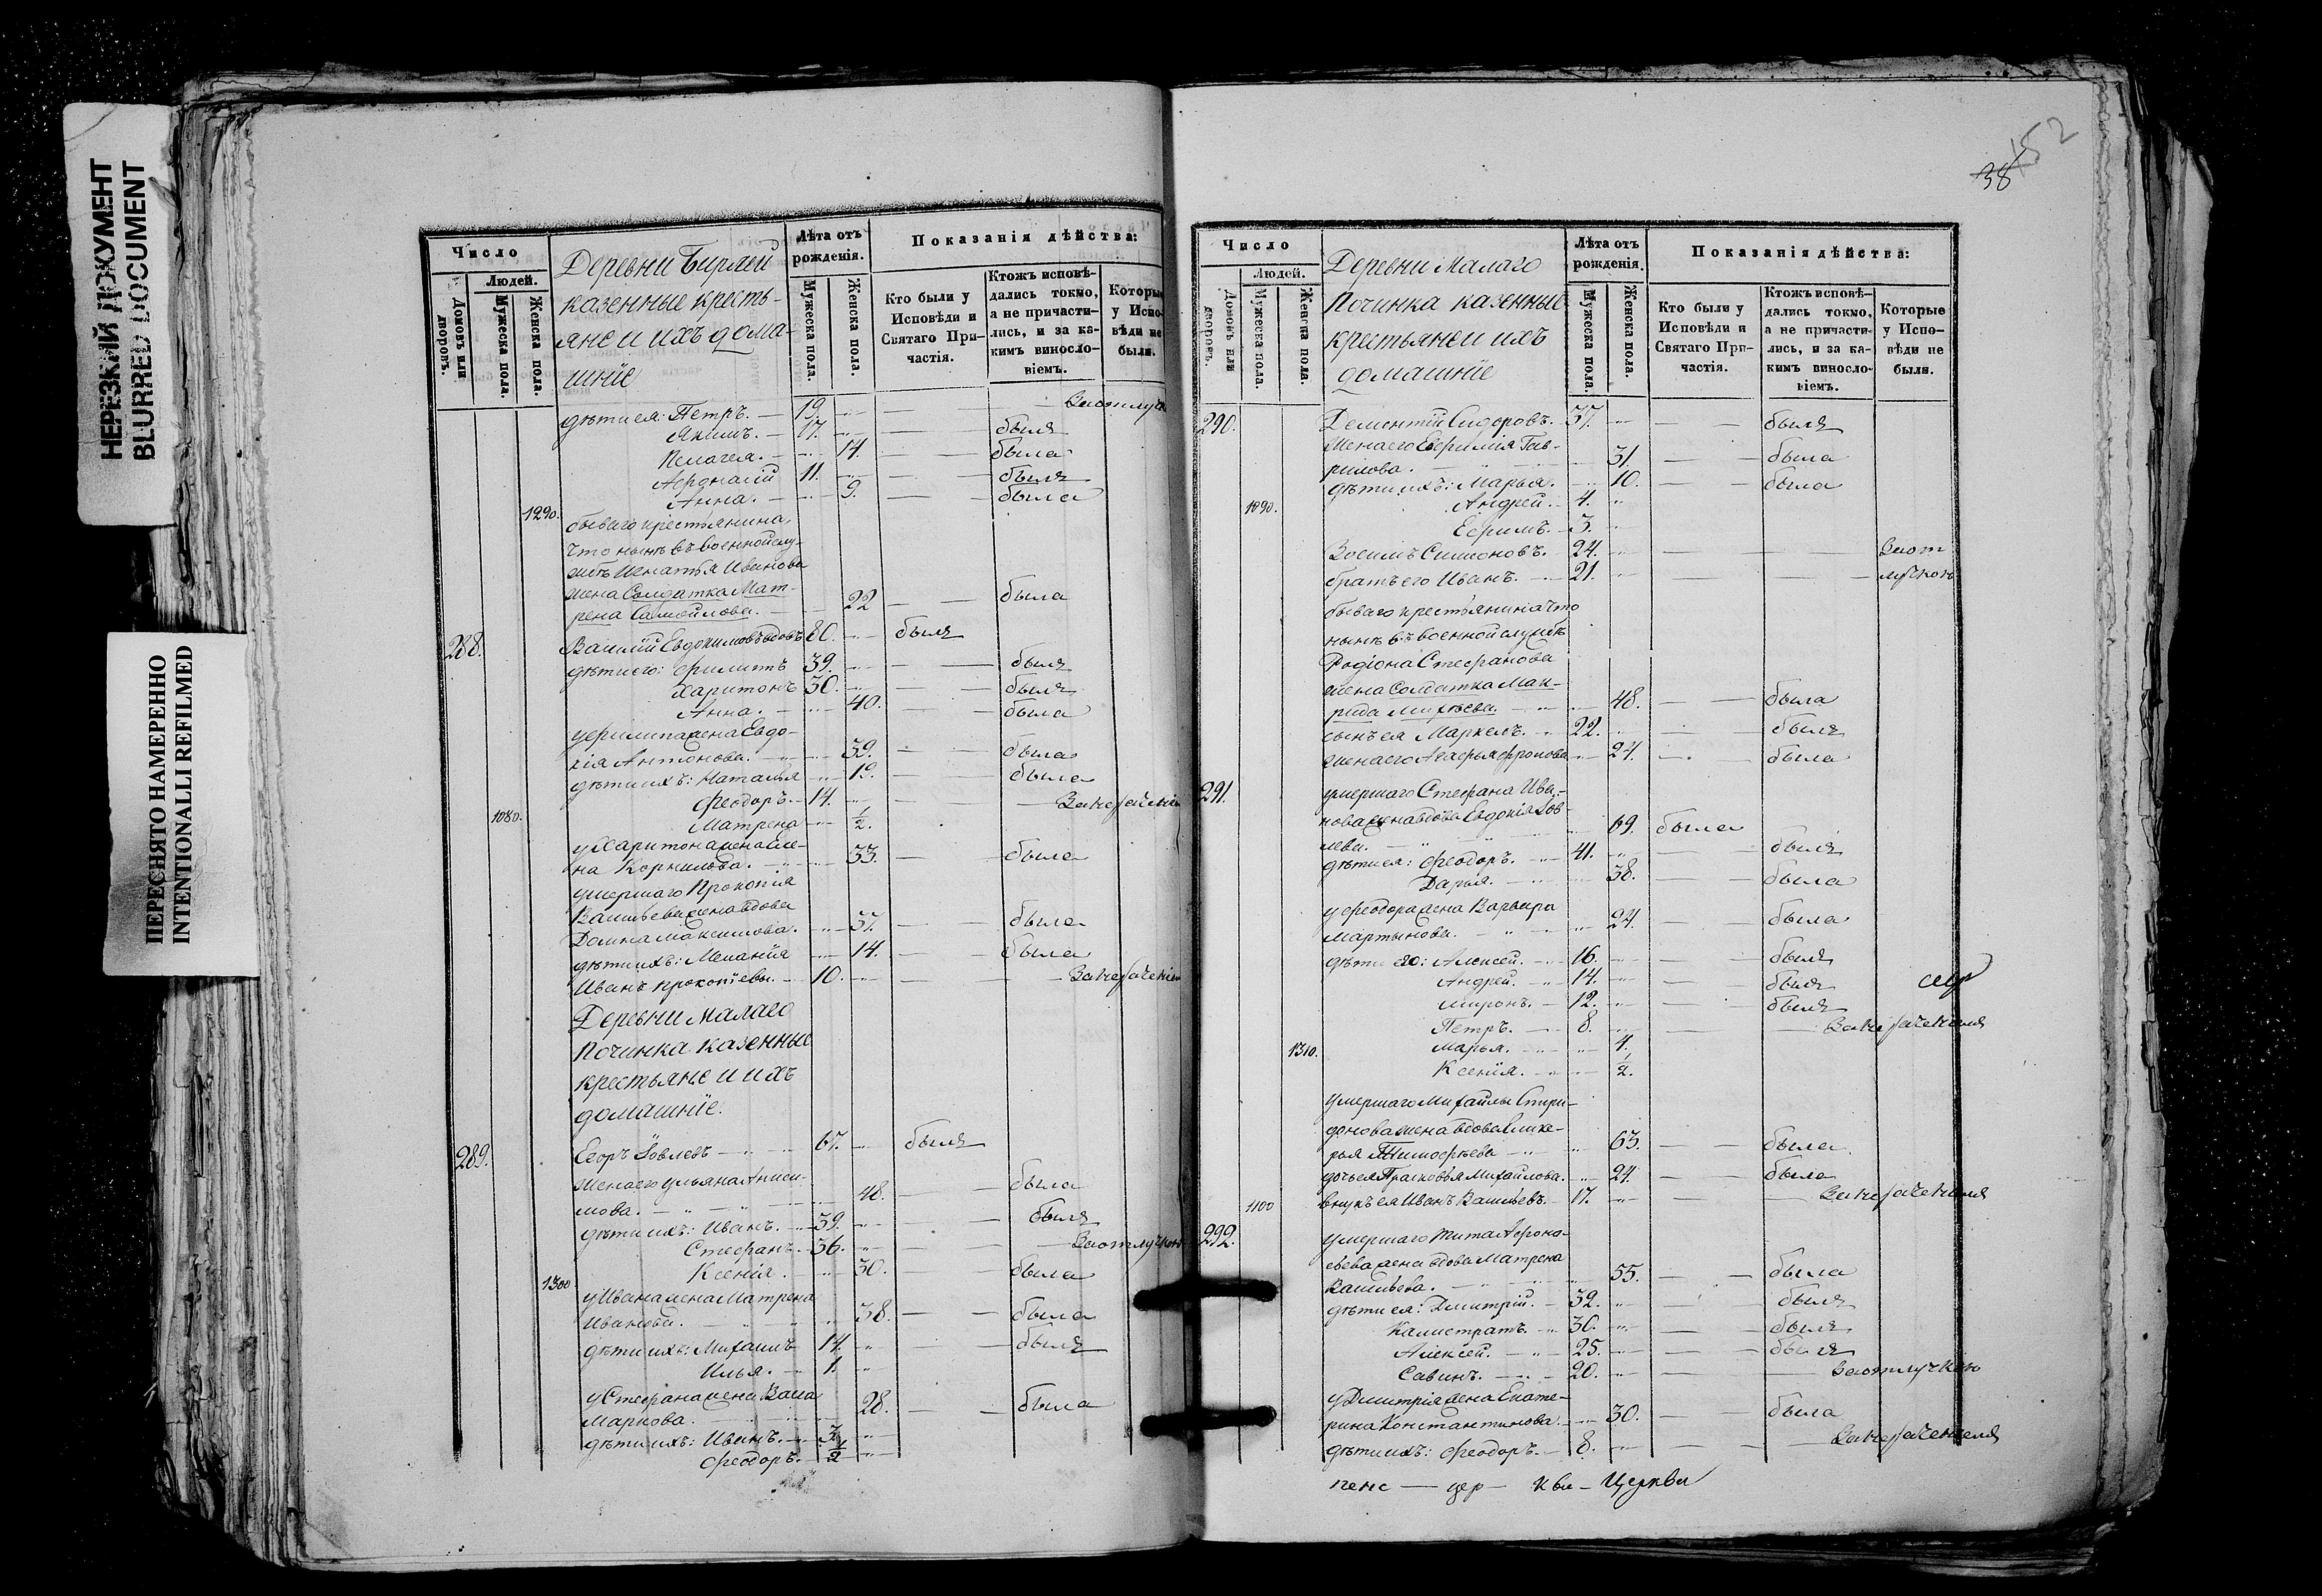 НЕРЕЗКИЙ ДОКУМЕНТ
BLURRED DOCUMENT
ПЕРЕСНЯТО НАМЕРЕННО
INTENTIONALLI REFILMED
Число
Людей.
Домовъ или дворовъ.
Мужеска пола.
Женска пола.
Деревни Бирлей
казенные кресть-
яне и ихъ дома-
шніе
Лѣта отъ рожденія.
Мужеска пола.
Женска пола.
Показанія дѣйства:
Кто были у Исповѣди и Святаго При-частія.
Ктожъ исповѣ-дались токмо, а не причасти-лись, и за ка-кимъ виносло-віемъ.
Которые у Испо-вѣди не были.
дѣти ея: Петръ. — 19.
Якимъ. — 17. былъ
Пелагея. — 14. была
Афонасій 11. былъ
Анна. — 9. была
1290.
бываго крестьянина,
что нынѣ въ военной слу-
жбѣ Игнатья Иванова
жена Солдатка Мат-
рена Самойлова. — 22 была
288. Василій Евдокимовъ вдовъ 80. былъ
дѣти его: Филиппъ 39. былъ
Харитонъ 30. былъ
Анна. — 40. была
у Филипа жена Евдо-
кія Антонова. — 39. была
дѣти ихъ: Наталья 19. была
Феодоръ. — 14.
1080. Матрена 1/2.
у Харитона жена Еле-
на Корнилова. — 33. была
умершаго Прокопія
Васильева жена вдова
Домна Максимова. 37. была
дѣти ихъ: Меланія 14. была
Иванъ Прокопіевы. — 10.
Деревни Малаго
Починка казенные
крестьяне и ихъ
домашніе.
289. Егоръ Іовлевъ — 67. былъ
жена его Ульяна Аниси-
мова. — 48. была
дѣти ихъ: Иванъ. — 39. былъ
Стефанъ. — 36. За отлучкою
1300. Ксенія. — 30. была
у Ивана жена Матрена
Иванова. 38. была
дѣти ихъ: Михаилъ 14. былъ
Илья. — 1.
у Стефана жена Васса
Маркова. 28. была
дѣти ихъ: Иванъ. — 3.
Феодоръ. — 1/2
38
152
Число
Людей.
Домовъ или дворовъ.
Мужеска пола.
Женска пола.
Деревни Малаго
Починка казенные
крестьяне и ихъ
домашніе
Лѣта отъ рожденія.
Мужеска пола.
Женска пола.
Показанія дѣйства:
Кто были у Исповѣди и Святаго При-частія.
Ктожъ исповѣ-дались токмо, а не причасти-лись, и за ка-кимъ виносло-віемъ.
Которые у Испо-вѣди не были.
290. Дементій Сидоровъ. 37. былъ
жена его Евфимія Гав-
рилова. 31. была
дѣти ихъ: Марья. — 10. была
1090. Андрей. — 4.
Ефимъ. — 3.
Зосимъ Симоновъ. — 24. За от
братъ его Иванъ. — 21. лучкою
бываго крестьянина что
нынѣ въ военной службѣ
Родіона Стефанова
жена Солдатка Мак-
рида Михѣева. 48. была
сынъ ея Маркелъ. — 22. былъ
жена его Агафья Фролова 24. была
291. умершаго Стефана Ива-
нова жена вдова Евдокія Іов-
лева. — 69. была
дѣти ея: Феодоръ. — 41. былъ
Дарья. — 38. была
у Феодора жена Варвара
Мартынова. — 24. была
дѣти его: Алексей. — 16. былъ
Андрей. — 14. былъ
Миронъ. — 12. былъ
Петръ. — 8.
1310. Марья. — 4.
Ксенія. — 1/2.
умершаго Михайлы Спири-
донова жена вдова Глике-
рья Тимофѣева — 63. была
дочь ея Прасковья Михайлова. 24. была
1100 внукъ ея Иванъ Васильевъ. — 17.
292. умершаго Тита Афона-
сьева жена вдова Матрена
Васильева. — 55. была
дѣти ея: Дмитрій. — 32. былъ
Калистратъ. — 30. былъ
Алексей. — 25. былъ
Савинъ. — 20. За отлучкою
у Дмитрія жена Екате-
рина Константинова. 30. была
дѣти ихъ: Феодоръ. — 8.
Церкви